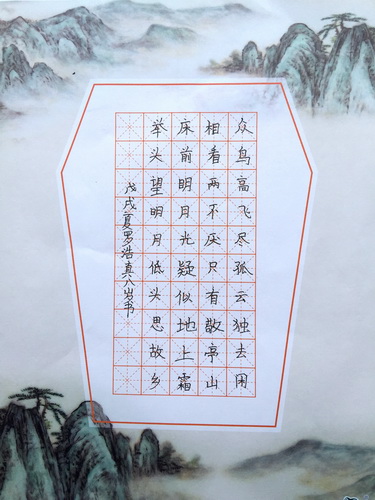 众鸟高飞尽孤云独去闲
相看两不厌只有敬亭山
床前明月光疑似地上霜
举头望明月低头思故乡
戊戌夏罗浩真八岁书